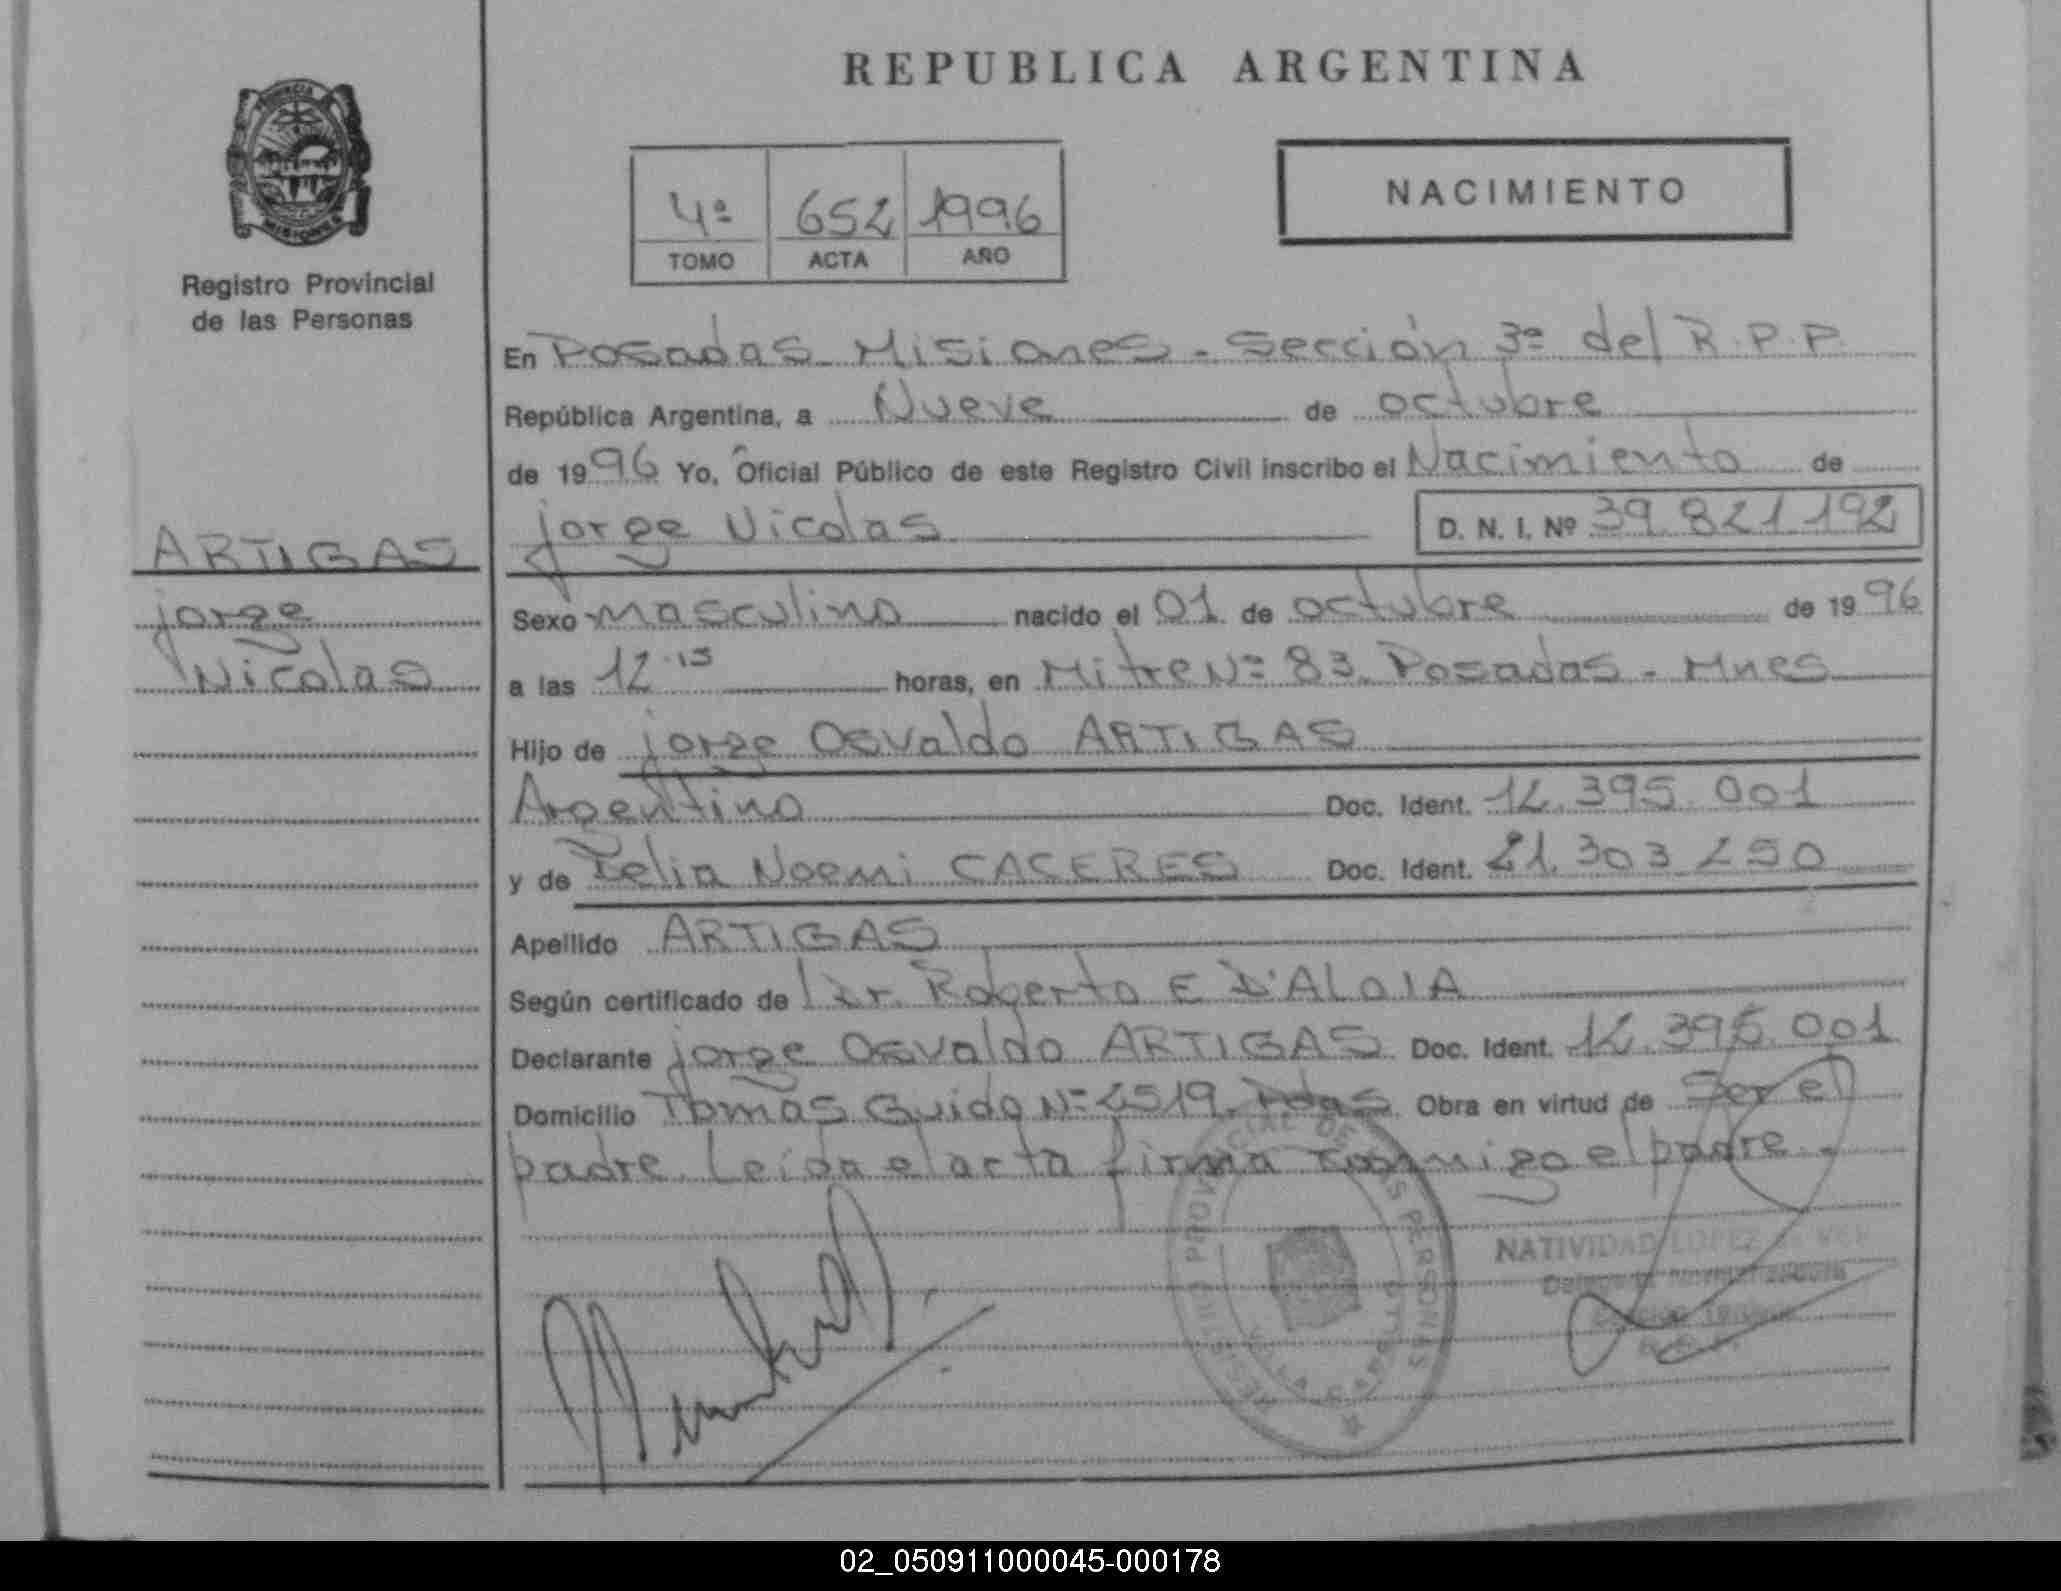 REPUBLICA ARGENTINA
PROVINCIA
MISIONES
Registro Provincial
de las Personas
4ª 652 1996
TOMO ACTA AÑO
NACIMIENTO
En Posadas Misiones - Sección 3ª del R.P.P.
República Argentina, a Nueve de octubre
de 1996 Yo, Oficial Público de este Registro Civil inscribo el Nacimiento de
jorge Nicolas D. N. I. Nº 39.821.192
ARTIGAS
jorge
Nicolas
Sexo masculino nacido el 01 de octubre de 1996
a las 12.15 horas, en Mitre Nº 83. Posadas - Mnes
Hijo de jorge Osvaldo ARTIGAS
Argentino Doc. Ident. 12.395.001
y de Delia Noemi CACERES Doc. Ident. 21.303.250
Apellido ARTIGAS
Según certificado de Dr. Roberto E D'ALOIA
Declarante jorge Osvaldo ARTIGAS Doc. Ident. 12.395.001
Domicilio Tomas Guido Nº 2519. Pdas. Obra en virtud de Ser el
padre. Leida el acta firma conmigo el padre.-
REGISTRO PROVINCIAL DE LAS PERSONAS
VILLA CABELLO
NATIVIDAD LOPEZ
02_050911000045-000178